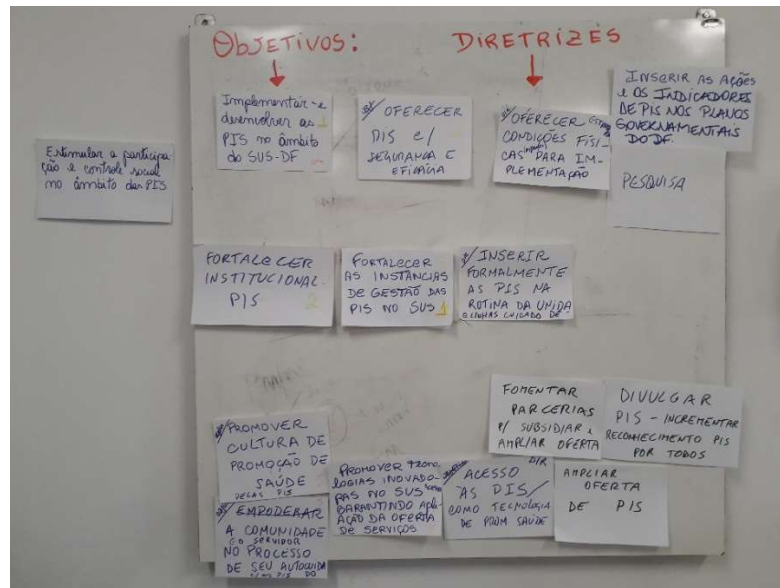 OBJETIVOS:
DIRETRIZES
Estimular a participa-
ção e controle social
no âmbito das PIS
Implementar e
desenvolver as
PIS no âmbito
do SUS-DF
OFERECER
PIS c/
SEGURANÇA E
EFICÁCIA
OFERECER
CONDIÇÕES FÍSI-
CAS PARA IM-
PLEMENTAÇÃO
INSERIR AS AÇÕES
E OS INDICADORES
DE PIS NOS PLANOS
GOVERNAMENTAIS
DO DF.
PESQUISA
FORTALECER
INSTITUCIONAL.
PIS 2
FORTALECER
AS INSTÂNCIAS
DE GESTÃO DAS
PIS NO SUS 1
INSERIR
FORMALMENTE
AS PIS NA
ROTINA DA UNIDA
CUIDADO DE
FOMENTAR
PARCERIAS
P/ SUBSIDIAR E
AMPLIAR OFERTA
DIVULGAR
PIS - INCREMENTAR
RECONHECIMENTO PIS
POR TODOS
PROMOVER
CULTURA DE
PROMOÇÃO DE
SAÚDE
PELAS PIS
PROMOVER TECNO
LOGIAS INOVADO-
RAS NO SUS
GARANTINDO APLI-
AÇÃO DA OFERTA
DE SERVIÇOS
ACESSO
ÀS PIS/
COMO TECNOLOGIA
DE PROM SAÚDE
AMPLIAR
OFERTA
DE PIS
EMPODERAR
A COMUNIDADE
E O SERVIDOR
NO PROCESSO
DE SEU AUTOCUIDA